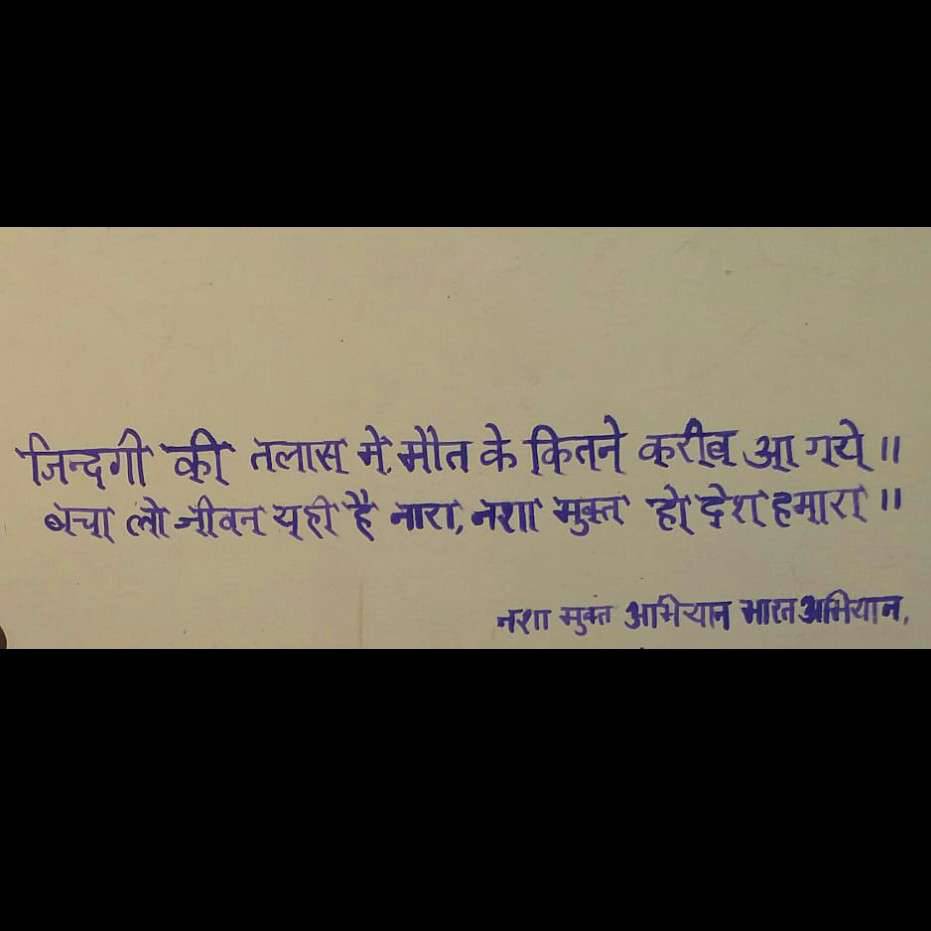 जिन्दगी की तलास में, मौत के कितने करीब आ गये॥
बचा लो जीवन यही है नारा, नशा मुक्त हो देश हमारा॥
नशा मुक्त अभियान भारत अभियान,